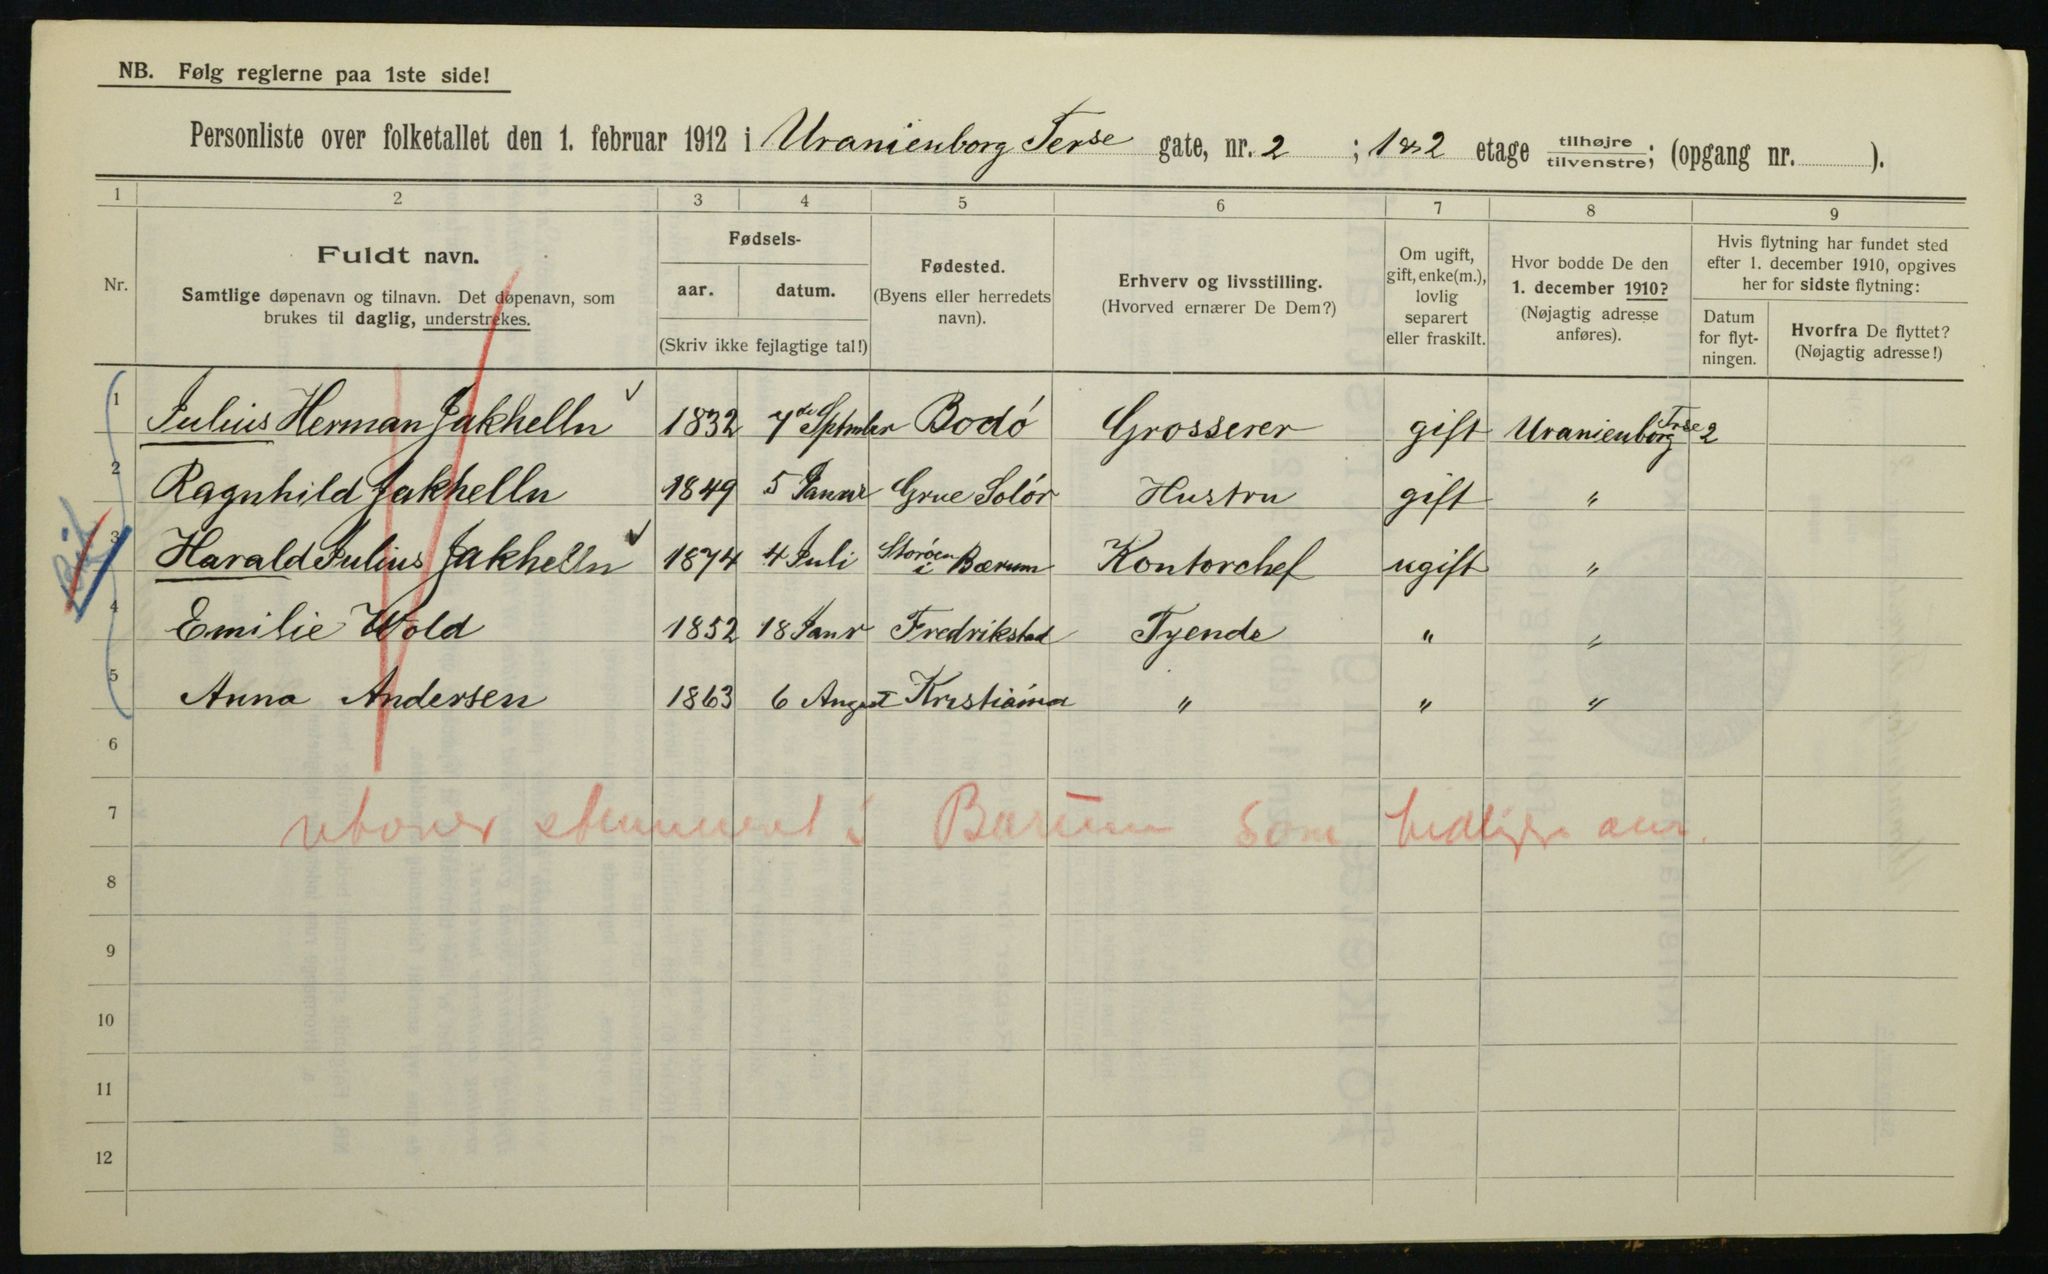 NB. Følg reglerne paa 1ste side!
Personliste over folketallet den 1. februar 1912 i Uranienborg Terse gate, nr. 2 ; 1 & 2 etage tilhøjre tilvenstre; (opgang nr. ).
1 2 3 4 5 6 7 8 9
Nr.
Fuldt navn.
Samtlige døpenavn og tilnavn. Det døpenavn, som
brukes til daglig, understrekes.
Fødsels-
aar. datum.
(Skriv ikke fejlagtige tal!)
Fødested.
(Byens eller herredets
navn).
Erhverv og livsstilling.
(Hvorved ernærer De Dem?)
Om ugift,
gift, enke(m.),
lovlig
separert
eller fraskilt.
Hvor bodde De den
1. december 1910?
(Nøjagtig adresse
anføres).
Hvis flytning har fundet sted
efter 1. december 1910, opgives
her for sidste flytning:
Datum
for flyt-
ningen.
Hvorfra De flyttet?
(Nøjagtig adresse!)
1 Julius Herman Jakhelln 1832 7de Septmber Bodó Grosserer gift Uranienborg Trse 2
2 Ragnhild Jakhelln 1849 5 Januar Grue Solór Hustru gift "
3 Harald Julius Jakhelln 1874 4 Juli Storóen i Bærum Kontorchef ugift "
4 Emilie Wold 1852 18 Janr Fredrikstad Tyende " "
5 Anna Andersen 1863 6 August Kristiania " " "
6
7 i Bærum som
8
9
10
11
12